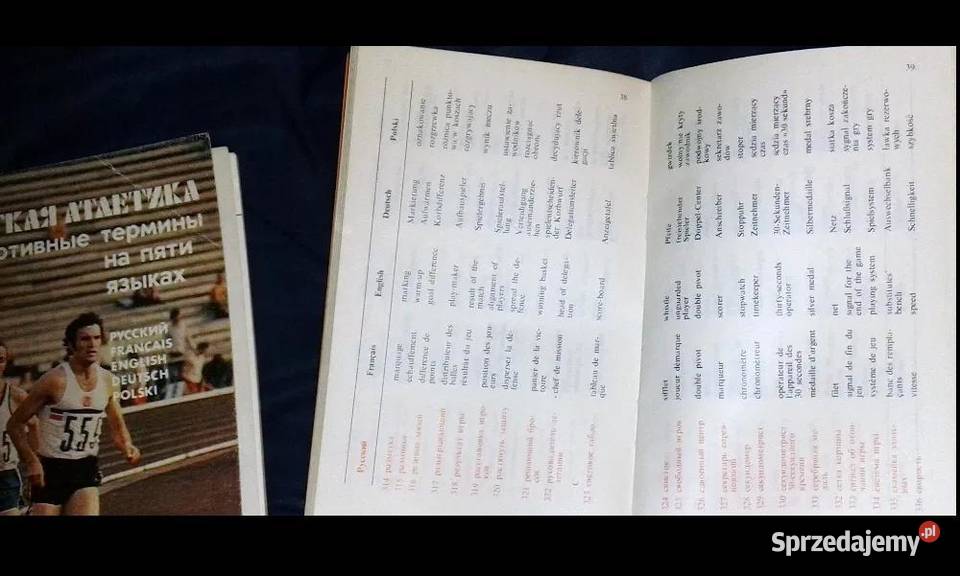 КАЯ АТЛЕТИКА
ртивные термины
на пяти
языках
РУССКИЙ
FRANÇAIS
ENGLISH
DEUTSCH
POLSKI
555
5
38
Русский Français English Deutsch Polski
314 разметка marquage marking Markierung oznakowanie
315 разминка échauffement warm-up Aufwärmen rozgrzewka
316 différence de points goal difference Korbdifferenz różnica punktowa w koszach
317 разыгрывающий distributeur des balles play-maker Aufbauspieler rozgrywający
318 результат игры résultat du jeu result of the match Spielergebnis wynik meczu
319 расстановка игроков position des joueurs alignment of players Spieleraufstellung ustawienie zawodników
320 растянуть защиту disperser la défense spread the defence Verteidigung auseinanderziehen rozciągnąć obronę
321 решающий бросок panier de la victoire winning basket spielentscheidender Korbwurf decydujący rzut
322 руководитель делегации chef de mission head of delegation Delegationsleiter kierownik delegacji
С
323 световое табло tableau de marque score-board Anzeigetafel tablica świetlna
39
324 свисток sifflet whistle Pfeife gwizdek
325 свободный игрок joueur démarqué unguarded player freistehender Spieler wolny/nie kryty zawodnik
326 сдвоенный центр double pivot double pivot Doppel-Center podwójny środkowy
327 marqueur scorer Anschreiber sekretarz zawodów
328 секундомер chronomètre stopwatch Stoppuhr stoper
329 секундометрист chronométreur timekeeper Zeitnehmer sędzia mierzący czas
330 opérateur de l'appareil des 30 secondes thirty-seconds operator 30-Sekunden-Zeitnehmer sędzia mierzący czas «30 sekund»
331 серебряная медаль médaille d'argent silver medal Silbermedaille medal srebrny
332 сетка корзины filet net Netz siatka kosza
333 signal de fin du jeu signal for the end of the game Schlußsignal sygnał zakończenia gry
334 система игры système de jeu playing system Spielsystem system gry
335 banc des remplaçants substitutes' bench Auswechselbank ławka rezerwowych
336 скорость vitesse speed Schnelligkeit szybkość
Sprzedajemy.pl